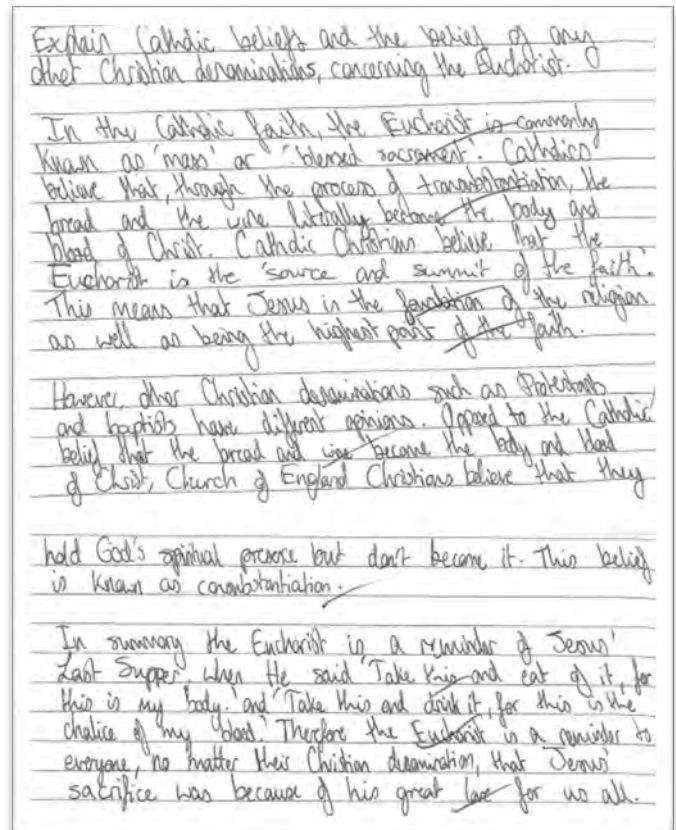 Explain Catholic beliefs and the belief of any
other Christian denominations, concerning the Eucharist.
In the Catholic faith, the Eucharist is commonly
known as 'mass' or 'blessed sacrament'. Catholics
believe that, through the process of transubstantiation, the
bread and the wine literally become the body and
blood of Christ. Catholic Christians believe that the
Eucharist is the 'source and summit of the faith'.
This means that Jesus is the foundation of the religion
as well as being the highest point of the faith.
However, other Christian denominations such as Protestants
and baptists have different opinions. Opposed to the Catholic
belief that the bread and wine become the body and blood
of Christ, Church of England Christians believe that they
hold God's spiritual presence but don't become it. This belief
is known as consubstantiation.
In summary the Eucharist is a reminder of Jesus'
Last Supper, when He said 'Take this and eat of it, for
this is my body.' and 'Take this and drink it, for this is the
chalice of my blood.' Therefore the Eucharist is a reminder to
everyone, no matter their Christian denomination, that Jesus'
sacrifice was because of his great love for us all.